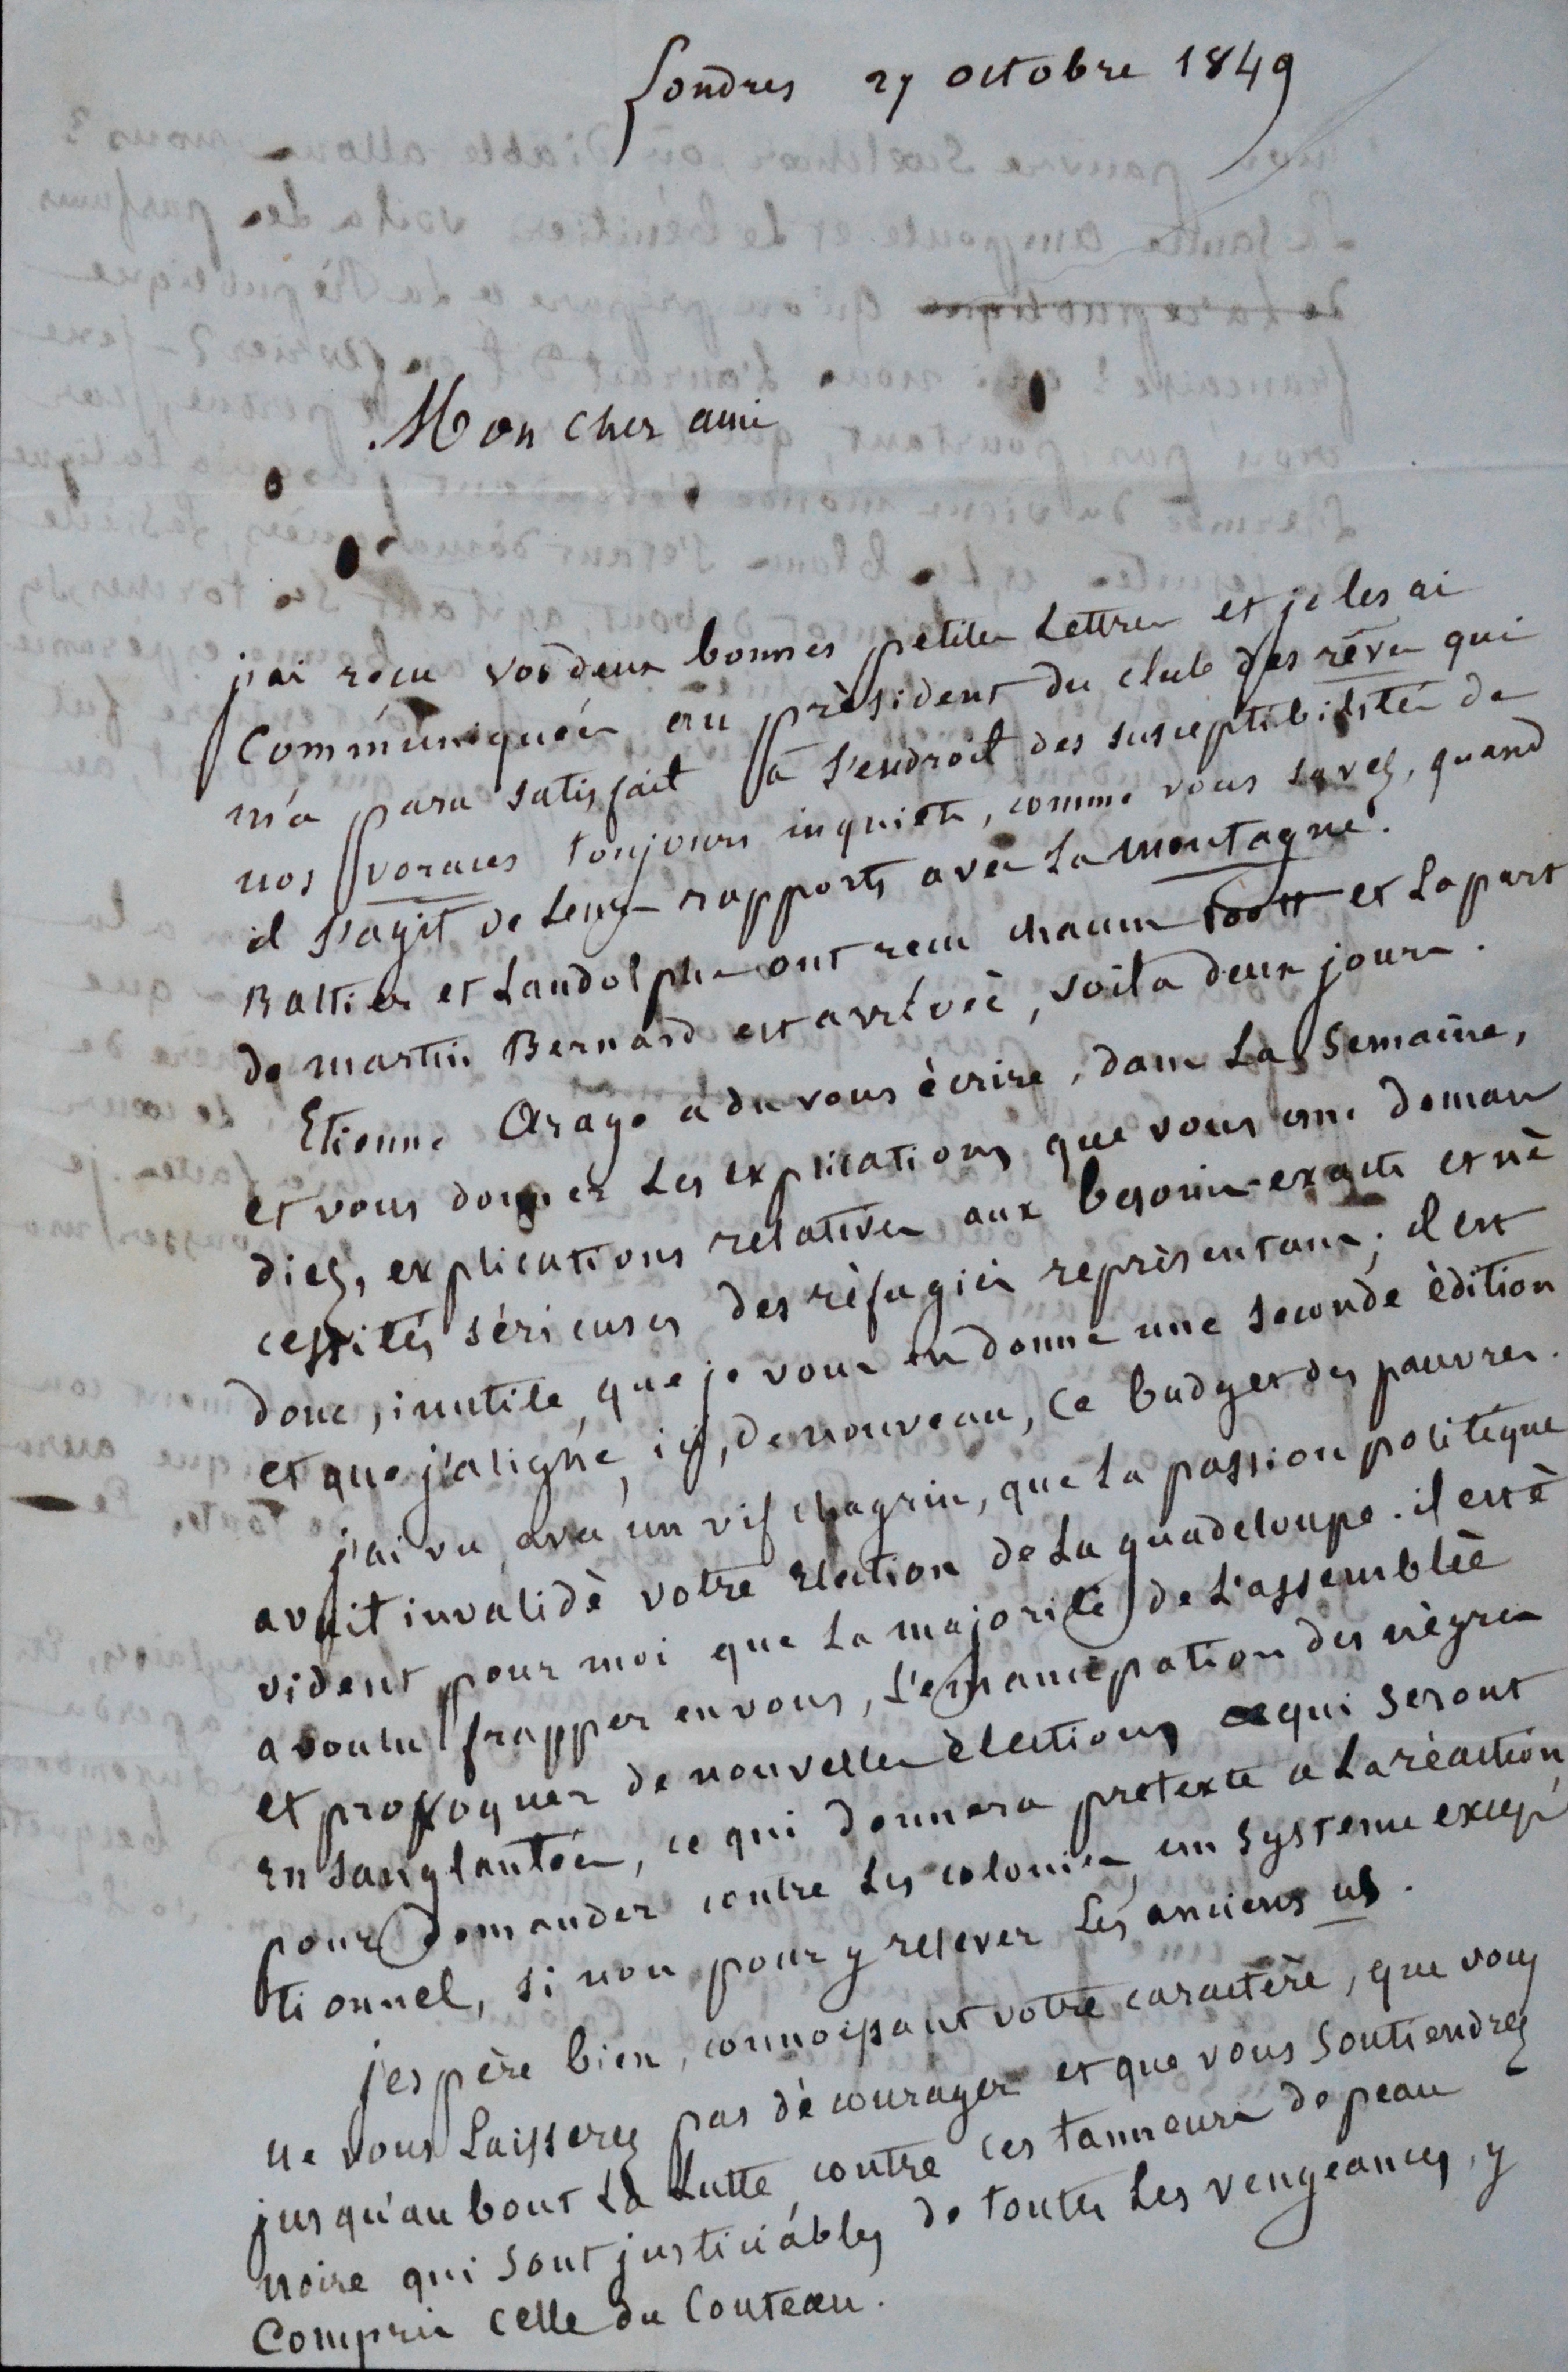 Londres 27 octobre 1849
Mon cher ami
j'ai reçu vos deux bonnes petites Lettres et je les ai
Communiquées au président du club des rêves qui
m'a paru satisfait à l'endroit des susceptibilités de
nos voraces toujours inquiets, comme vous savez, quand
il s'agit de leurs rapports avec La montagne.
Rattier et Landolphe ont reçu chacun et La part
de martin Bernard est arrivée, voilà deux jours.
Etienne Arago a du vous écrire, dans La Semaine,
et vous donner Les explications que vous me deman
diez, explications relatives aux besoins exacts et né
cessités sérieuses des réfugiés représentans; il est
donc, inutile, que je vous en donne une seconde édition
et que j'aligne, ici, de nouveau, ce budget des pauvres.
j'ai vu, avec un vif chagrin, que La passion politique
avait invalidé votre Election de La guadeloupe. il est é
vident pour moi que La majorité de L'assemblée
a voulu frapper en vous, L'emancipation des nègres
et provoquer de nouvelles élections qui seront
Ensanglantées, ce qui donnera pretexte a La réaction
pour Demander contre Les colonies, un Systeme excep
tionnel, si non pour y relever Les anciens us.
j'espère bien, connoissant votre caractère, que vous
ne vous Laisserez pas décourager et que vous Soutiendrez
jusqu'au bout La Lutte, contre ces tanneurs de peau
noire qui Sont justiciables de toutes Les vengeances, y
Compris celle du Couteau.